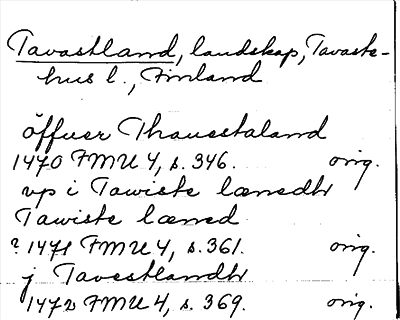 Tavastland, landskap, Tavaste-
hus l., Finland
öffuer Thauestaland
1470 FMU 4, s. 346. orig.
vp i Tawiste lænedh
Tawiste læned
? 1471 FMU 4, s. 361. orig.
j Tavestlandh
1472 FMU 4, s. 369. orig.